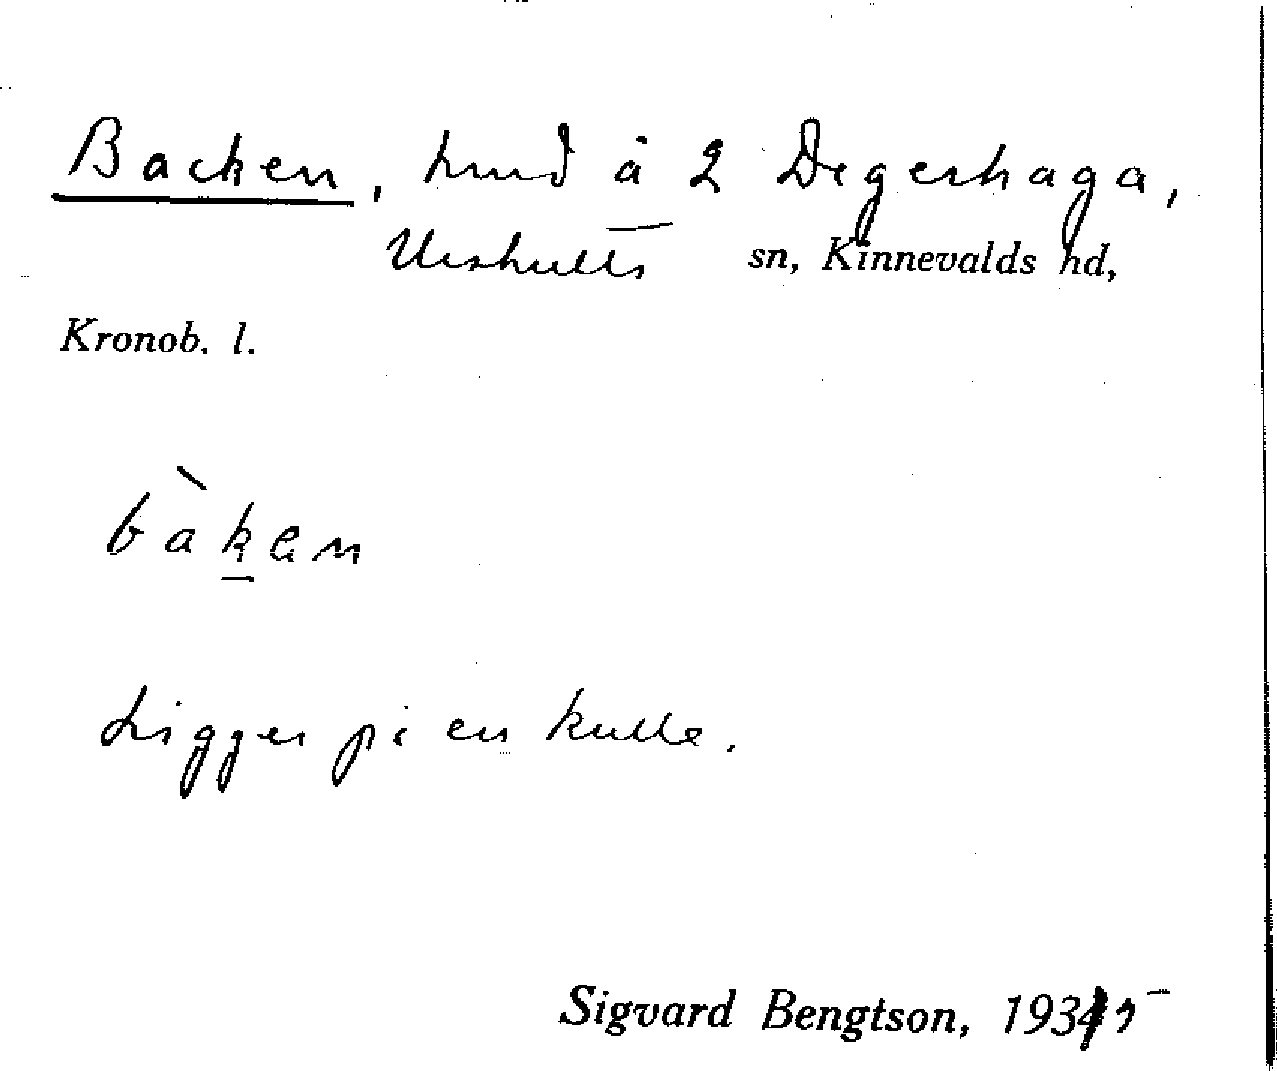 Backen, hmd å 2 Degerhaga,
Urshults sn, Kinnevalds hd,
Kronob. l.
bàkan
Ligger på en kulle.
Sigvard Bengtson, 1935